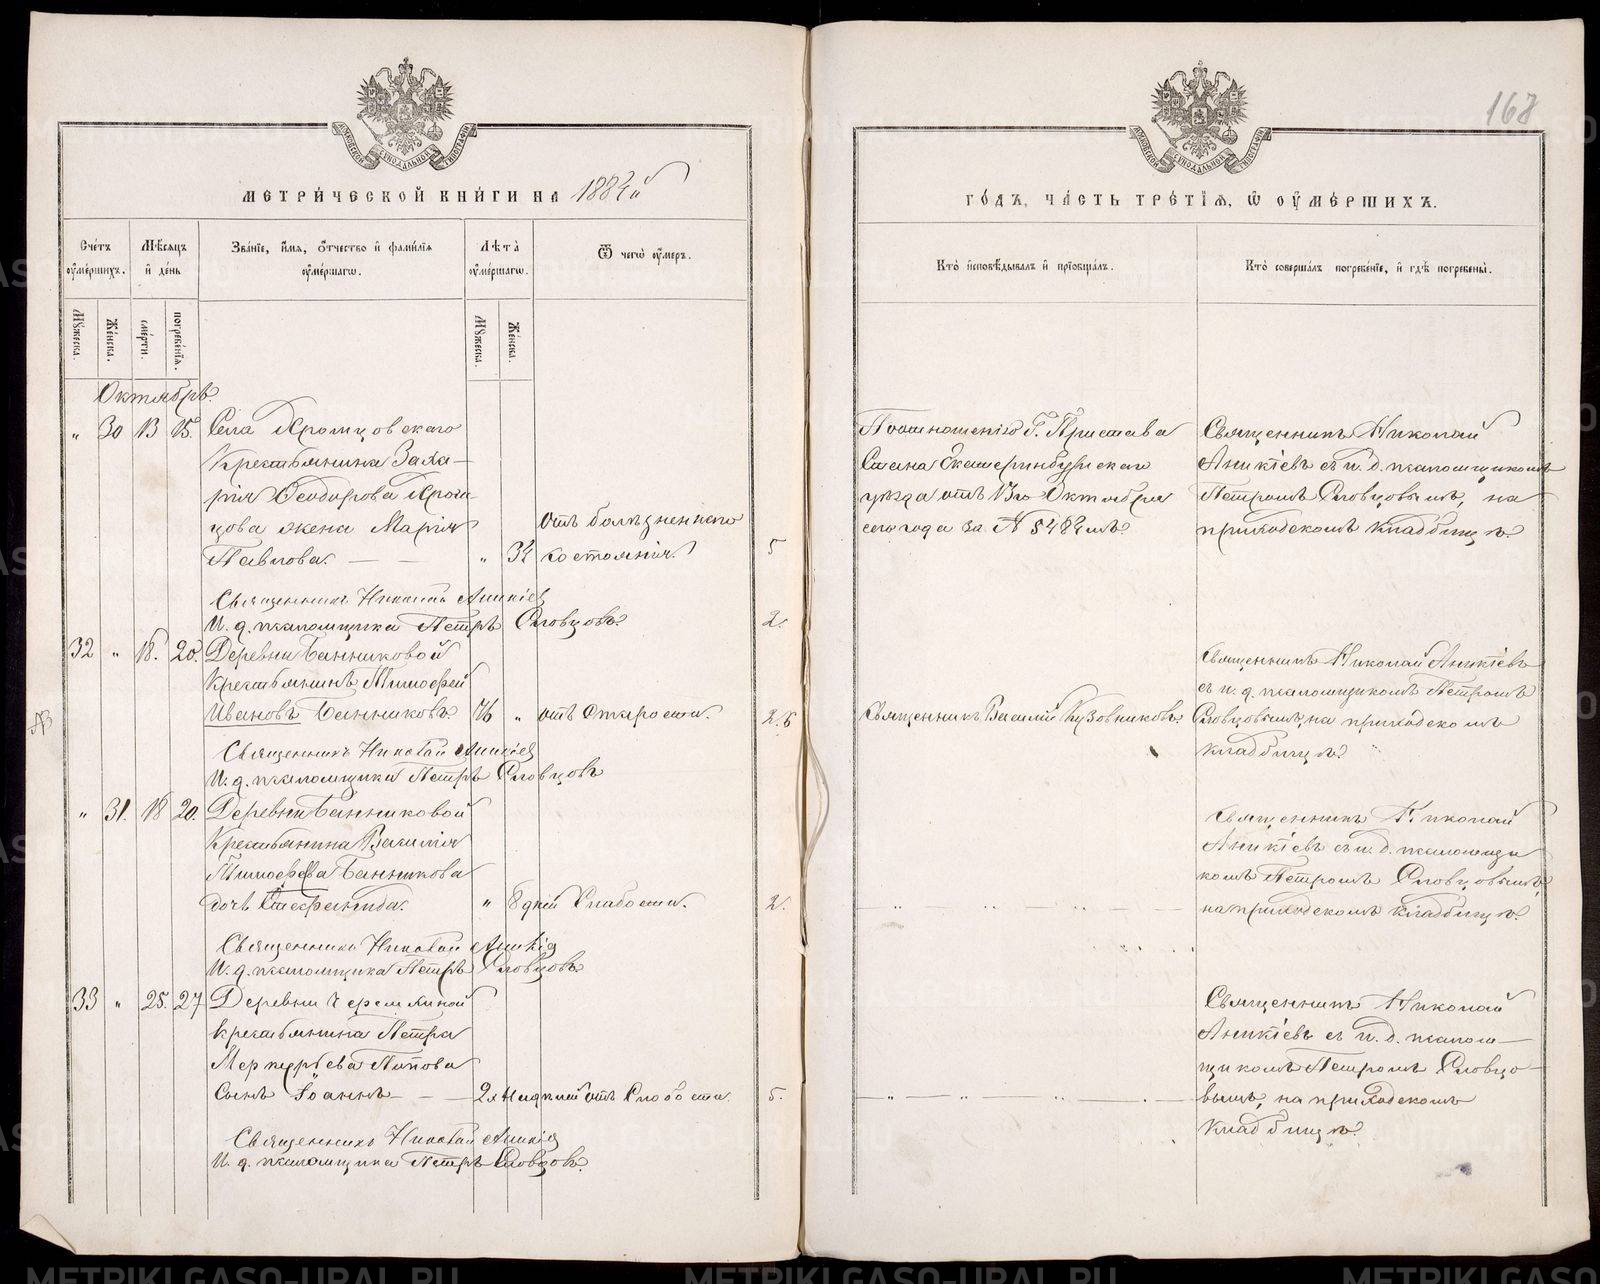 168
МОСКОВСКОЙ СѴНОДАЛЬНОЙ ТИПОГРАФІИ
МОСКОВСКОЙ СѴНОДАЛЬНОЙ ТИПОГРАФІИ
МЕТРИ́ЧЕСКОЙ КНИ́ГИ НА 1884й
ГО́ДЪ, ЧА́СТЬ ТРЕ́ТІѦ, Ѿ ОУ҆МЕ́РШИХЪ.
Сче́тъ оу҆ме́ршихъ.
Мѣ́сѧцъ и҆ де́нь
Зва́ніе, и҆́мѧ, ѻ҆́тчество и҆ фами́лїѧ оу҆ме́ршагѡ.
Лѣ́та оу҆ме́ршагѡ.
Ѿ чегѡ̀ оу҆́меръ.
Кто̀ и҆сповѣ́дывалъ и҆ прїѡбща́лъ.
Кто̀ соверша́лъ погребе́нїе, и҆ гдѣ̀ погребены̀.
Мꙋ́жеска.
Же́нска.
сме́рти.
погребе́нїѧ.
Мꙋ́жеска.
Же́нска.
Октябрь.
„ 30 13 15. Села Хромцовскаго
Крестьянина Заха-
рія Ѳеодорова Хром-
цова жена Марія
Павлова. — — „ 34
отъ болѣзненнаго
состоянія. 5
По отношенію Г. Пристава
Стана Екатеринбургскаго
уѣзда отъ 13го Октября
сего года за № 5484мъ.
Священникъ Николай
Аникіевъ съ и. д. псаломщикомъ
Петромъ Словцовымъ, на
приходскомъ кладбищѣ.
Священникъ Николай Аникіев
И. д. псаломщика Петръ Словцовъ. 2.
32 „ 18. 20. Деревни Банниковой
Крестьянинъ Тимофей
Ивановъ Банниковъ. 76 „ отъ Старости. 2.6
Священникъ Василій Кузовниковъ.
Священникъ Николай Аникіевъ
съ и. д. псаломщикомъ Петромъ
Словцовымъ, на приходскомъ
кладбищѣ.
Священникъ Николай Аникіев
И. д. псаломщика Петръ Словцовъ
„ 31. 18 20. Деревни Банниковой
Крестьянина Василія
Тимофеева Банникова
дочь Стефанида. „ 8 дней Слабости. 2.
Священникъ Николай
Аникіевъ съ и. д. псаломщи
комъ Петромъ Словцовымъ,
на приходскомъ кладбищѣ.
Священникъ Николай Аникіев
И. д. псаломщика Петръ Словцовъ
33 „ 25. 27 Деревни Черемхиной
крестьянина Петра
Меркурьева Попова
сынъ Іоаннъ — — 2 отъ Слабости. 5.
Священникъ Николай
Аникіевъ съ и. д. псалом-
щикомъ Петромъ Словцо-
вымъ, на приходскомъ
кладбищѣ.
Священникъ Николай Аникіев
И. д. псаломщика Петръ Словцовъ.
METRIKI.GASO-URAL.RU